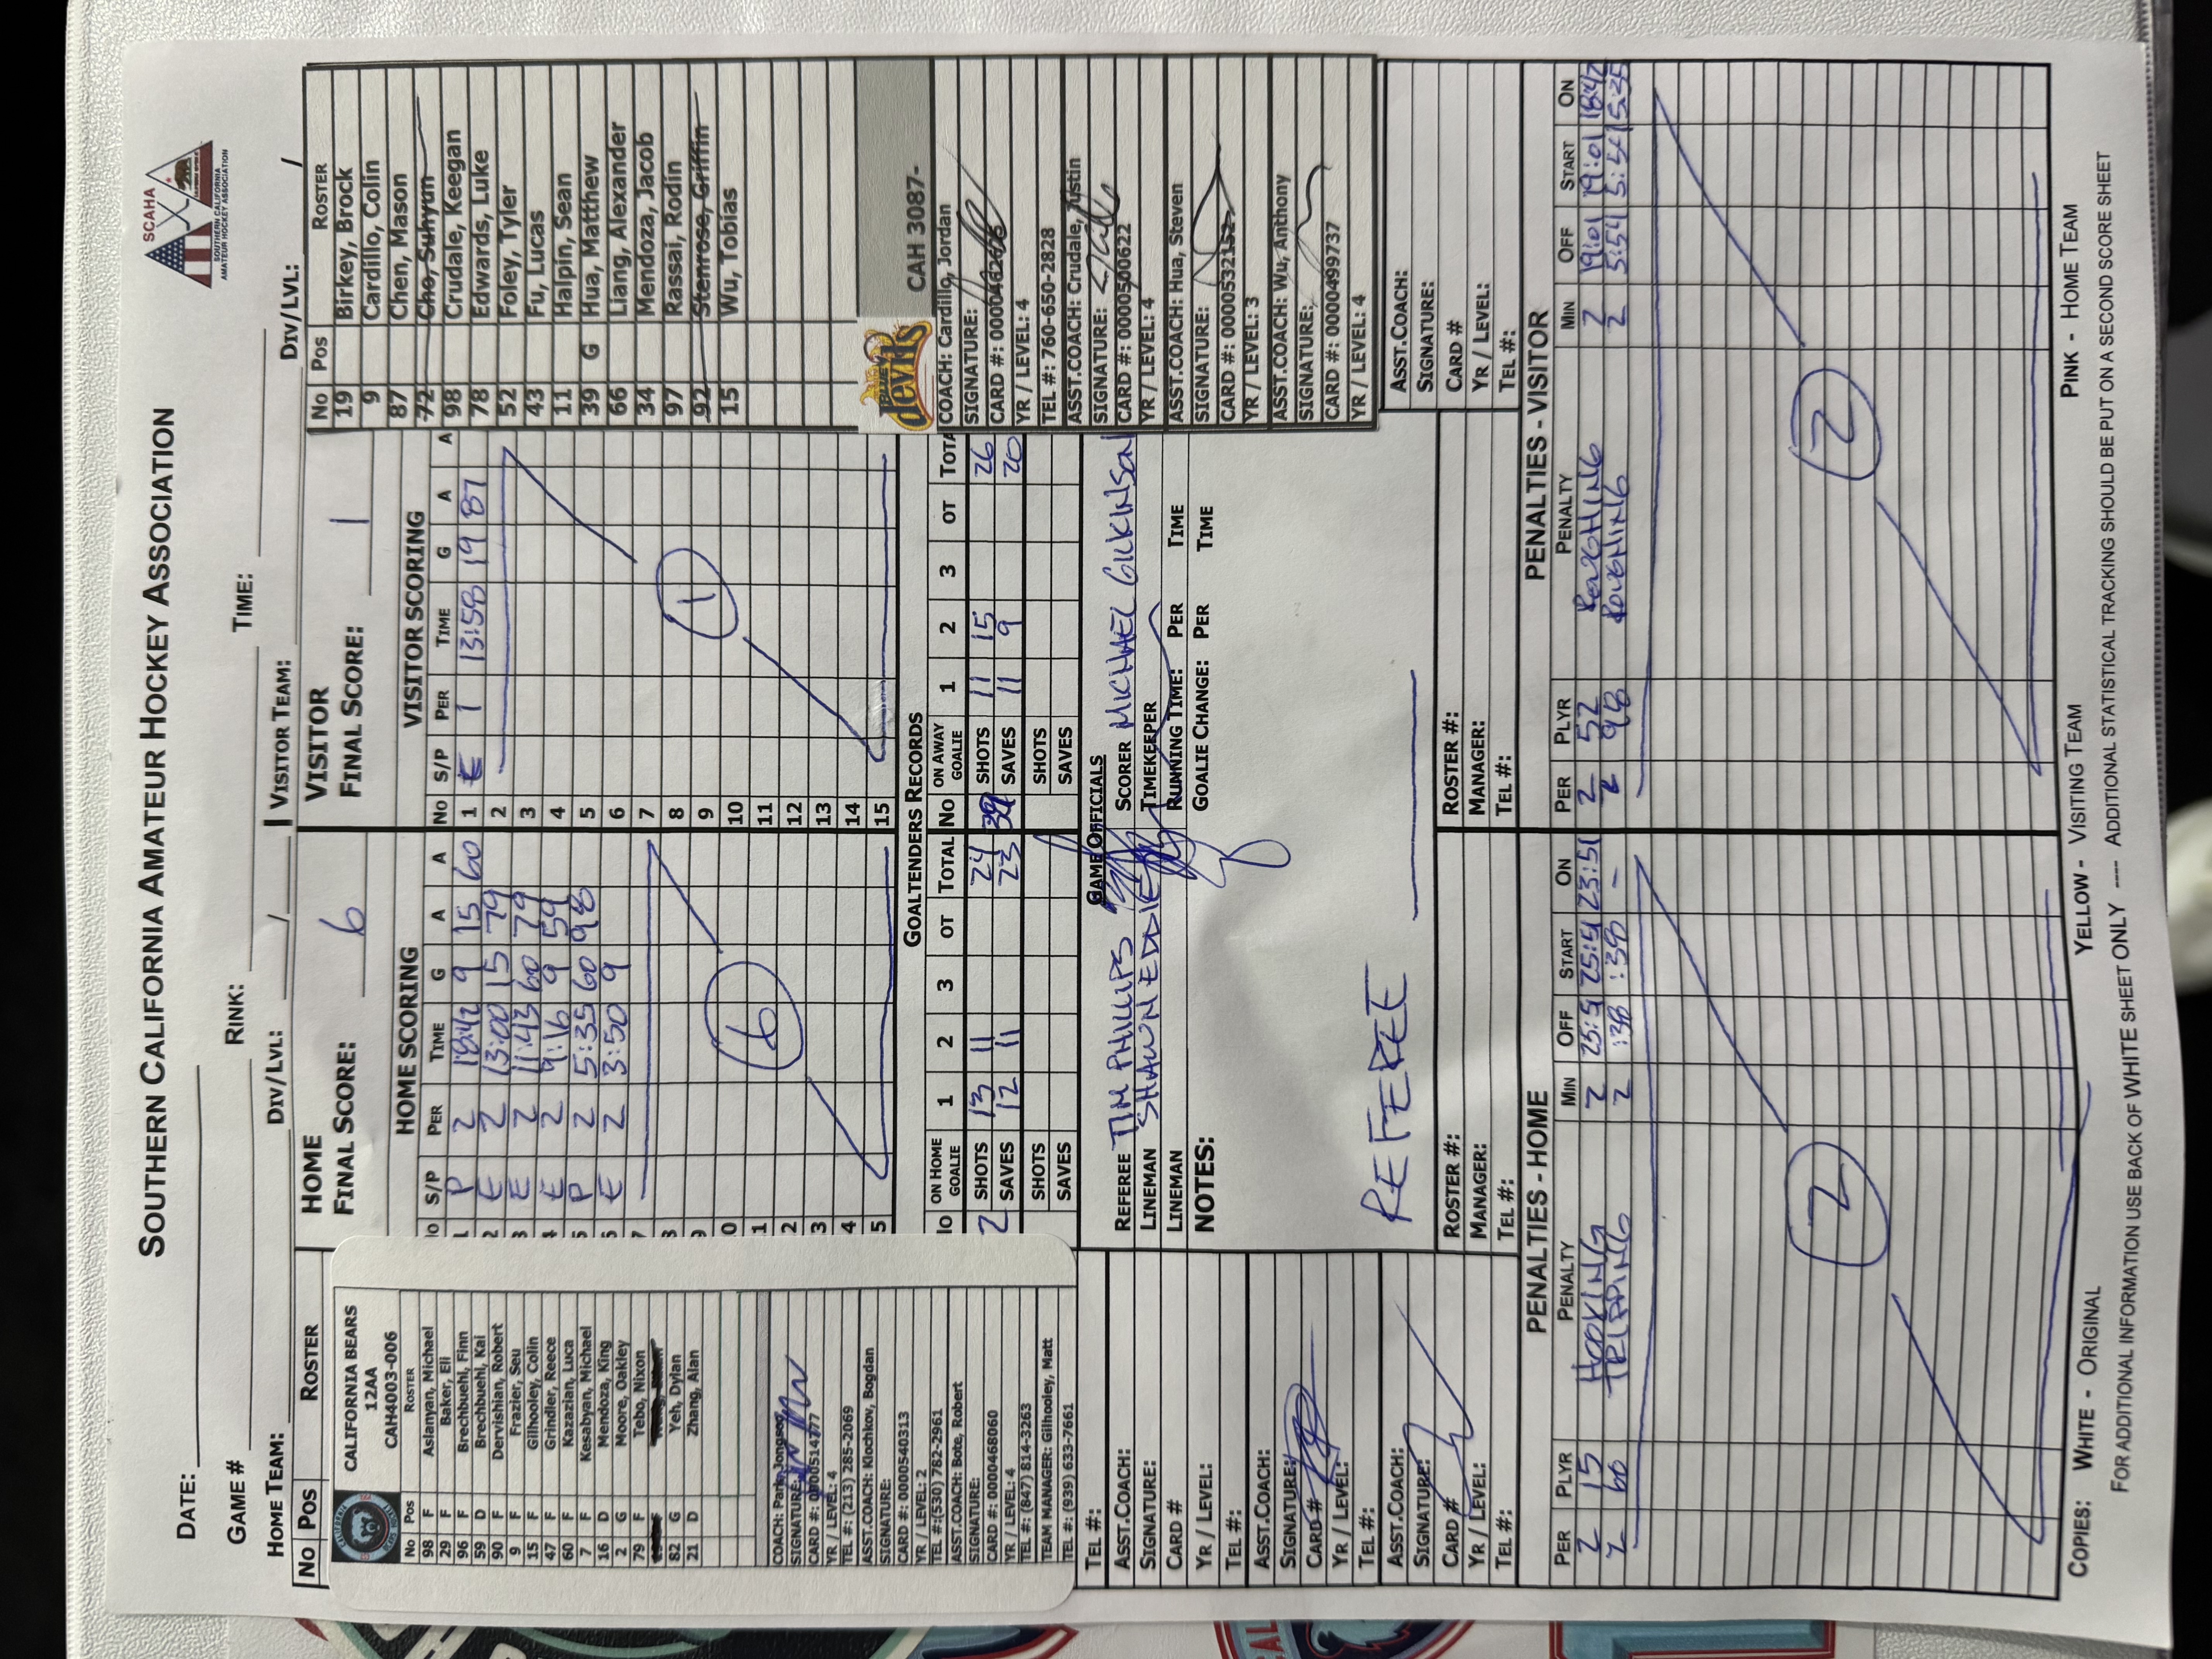 SOUTHERN CALIFORNIA AMATEUR HOCKEY ASSOCIATION
SCAHA
SOUTHERN CALIFORNIA
AMATEUR HOCKEY ASSOCIATION
DATE:
GAME # RINK: TIME:
HOME TEAM: DIV/LVL: / VISITOR TEAM: DIV/LVL: /
NO POS ROSTER
CALIFORNIA BEARS
12AA
CAH4003-006
No Pos ROSTER
98 F Aslanyan, Michael
29 F Baker, Eli
96 F Brechbuehl, Finn
59 D Brechbuehl, Kai
90 F Dervishian, Robert
9 F Frazier, Seu
15 F Gilhooley, Colin
47 F Grindler, Reece
60 F Kazazian, Luca
7 F Kesabyan, Michael
16 D Mendoza, King
2 G Moore, Oakley
79 F Tebo, Nixon
82 G Yeh, Dylan
21 D Zhang, Alan
COACH: Park, Jongseo
SIGNATURE:
CARD #: 0000514777
YR / LEVEL: 4
TEL #: (213) 285-2069
ASST.COACH: Klochkov, Bogdan
SIGNATURE:
CARD #: 0000540313
YR / LEVEL: 2
TEL #:(530) 782-2961
ASST.COACH: Bote, Robert
SIGNATURE:
CARD #: 0000468060
YR / LEVEL: 4
TEL #: (847) 814-3263
TEAM MANAGER: Gilhooley, Matt
TEL #: (939) 633-7661
TEL #:
ASST.COACH:
SIGNATURE:
CARD #
YR / LEVEL:
TEL #:
ASST.COACH:
SIGNATURE:
CARD #
YR / LEVEL:
TEL #:
ASST.COACH:
SIGNATURE:
CARD #
YR / LEVEL:
TEL #:
HOME
FINAL SCORE: 6
HOME SCORING
S/P PER TIME G A A
1 P 2 18:42 9 15 60
2 E 2 13:00 15 79
3 E 2 11:43 60 79
4 E 2 9:16 9 59
5 P 2 5:35 60 98
6 E 2 3:50 9
7
8
9
0
1
2
3
4
5
6
VISITOR
FINAL SCORE: 1
VISITOR SCORING
No S/P PER TIME G A A
1 E 1 13:58 19 87
2
3
4
5
6
7
8
9
10
11
12
13
14
15
1
GOALTENDERS RECORDS
ON HOME GOALIE 1 2 3 OT TOTAL
2 SHOTS 13 11 24
SAVES 12 11 23
SHOTS
SAVES
No ON AWAY GOALIE 1 2 3 OT TOTA
39 SHOTS 11 15 26
SAVES 11 9 20
SHOTS
SAVES
GAME OFFICIALS
REFEREE TIM PHILLIPS SCORER MICHAEL GILKINSON
LINEMAN SHAWN EDDIE TIMEKEEPER
LINEMAN RUNNING TIME: PER TIME
NOTES: GOALIE CHANGE: PER TIME
REFEREE
ROSTER #: ROSTER #:
MANAGER: MANAGER:
TEL #: TEL #:
No Pos ROSTER
19 Birkey, Brock
9 Cardillo, Colin
87 Chen, Mason
72 Cho, Suhyun
98 Crudale, Keegan
78 Edwards, Luke
52 Foley, Tyler
43 Fu, Lucas
11 Halpin, Sean
39 G Hua, Matthew
66 Liang, Alexander
34 Mendoza, Jacob
97 Rassai, Rodin
92 Stenrose, Griffin
15 Wu, Tobias
devils CAH 3087-
COACH: Cardillo, Jordan
SIGNATURE:
YR / LEVEL: 4
TEL #: 760-650-2828
ASST.COACH: Crudale, Justin
SIGNATURE:
CARD #: 0000500622
YR / LEVEL: 4
ASST.COACH: Hua, Steven
SIGNATURE:
CARD #: 0000532152
YR / LEVEL: 3
ASST.COACH: Wu, Anthony
SIGNATURE:
CARD #: 0000499737
YR / LEVEL: 4
ASST.COACH:
SIGNATURE:
CARD #
YR / LEVEL:
TEL #:
PENALTIES - HOME
PER PLYR PENALTY MIN OFF START ON
2 15 HOOKING 2 25:51 25:51 23:51
2 60 TRIPPING 2 :38 :38 -
2
PENALTIES - VISITOR
PER PLYR PENALTY MIN OFF START ON
2 52 ROUGHING 2 19:01 19:01 18:42
2 98 ROUGHING 2 5:51 5:51 5:35
2
COPIES: WHITE - ORIGINAL YELLOW - VISITING TEAM PINK - HOME TEAM
FOR ADDITIONAL INFORMATION USE BACK OF WHITE SHEET ONLY ---- ADDITIONAL STATISTICAL TRACKING SHOULD BE PUT ON A SECOND SCORE SHEET